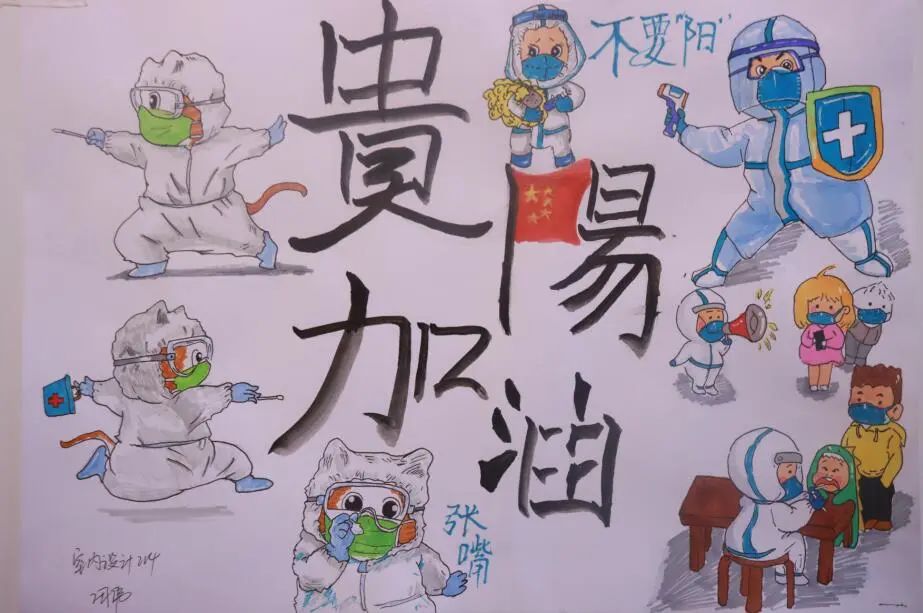 貴陽
加油
不要"阳"
张嘴
室内设计214